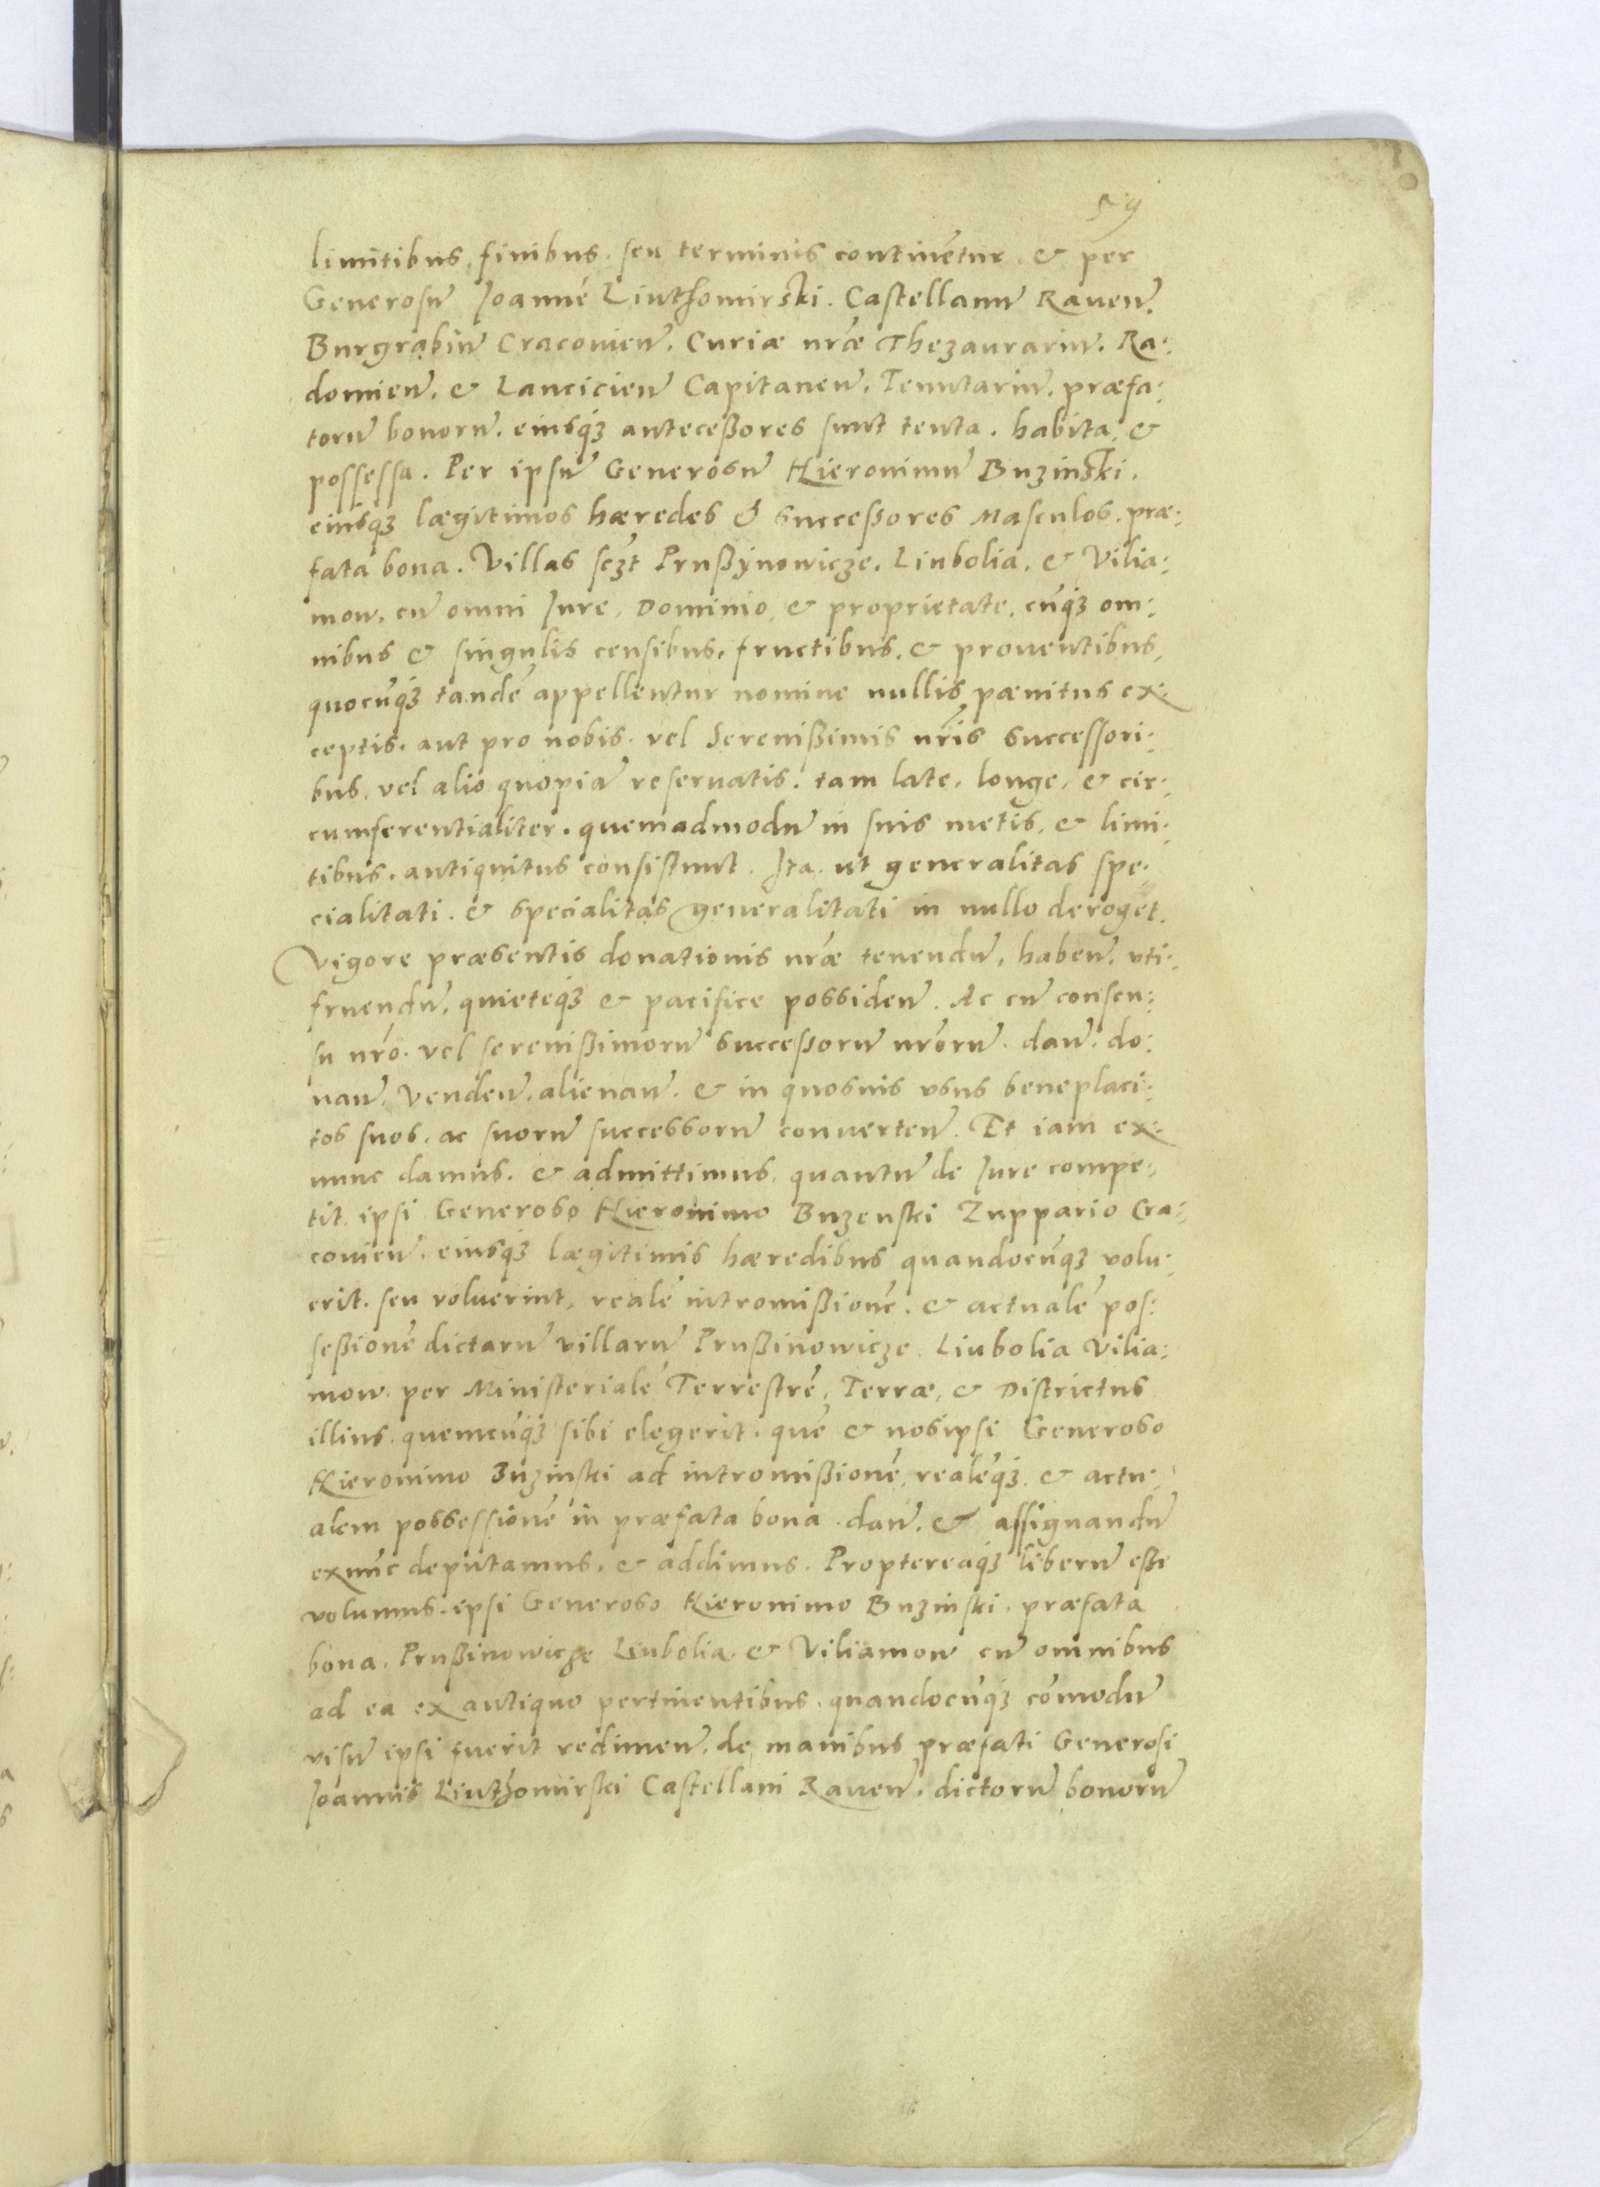 59
limitibus, finibus, seu terminis continẽtur & per
Generosũ Joannẽ Liuthomirski. Castellanũ Rauen̄.
Burgrabiũ Cracouien̄. Curiæ nr̃æ Thezaurariũ. Ra:
domien̄. & Lancicien̄ Capitaneũ. Tenutariũ. præfa:
torũ bonorũ. eiusq́ȝ anteceßores sunt tenta. habita, &
possessa. Per ipsũ Generosũ Hieronimũ Buzinski.
eiusqȝ lægitimos hæredes & succeßores Masculos. præ:
fata bona. Villas scȝt Prußÿnowicze. Liubolia. & Vilia:
mow. cũ omni Jure, Dominio, & proprietate. cũq́ȝ om:
nibus & singulis censibus, fructibus, & prouentibus,
quocũq́ȝ tandẽ appellentur nomine nullis pænitus ex:
ceptis. aut pro nobis. vel Serenißimis nr̃is successori:
bus. vel alio quopiã reseruatis. tam late, longe, & cir:
cumferentialiter. quemadmodũ in suis metis, & limi:
tibus. antiquitus consistunt. Ita. ut generalitas spe:
cialitati. & specialitas generalitati in nullo deroget.
Vigore præsentis donationis nr̃æ tenendũ, haben̄. vti:
fruendũ, quieteq́ȝ & pacifice possiden̄. Ac cũ consen:
su nr̃o. vel serenißimorũ succeßorũ nr̃orũ. dan̄. do:
nan̄. venden̄. alienan̄. & in quosuis vsus beneplaci:
tos suos. ac suorũ successorũ conuerten̄. Et iam ex:
nunc damus. & admittimus. quantũ de Jure compe:
tit. ipsi Generoso Hieronimo Buzenski Zuppario Cra:
couien̄. eiusq́ȝ lægitimis hæredibus quandocũq́ȝ volu:
erit. seu voluerint, realẽ intromißionẽ. & actualẽ pos:
seßionẽ dictarũ villarũ Prußinowicze. Liubolia Vilia:
mow. per Ministerialẽ Terrestrẽ, Terræ, & Districtus
illius. quemcũq́ȝ sibi elegerit. quẽ & nosipsi Generoso
Hieronimo Buzinski ad intromißionẽ, realẽq́ȝ. & actu:
alem possessionẽ in præfata bona. dan̄. & assignandũ
exnũc deputamus. & addimus. Proptereaq́ȝ liberũ eße
volumus. ipsi Generoso Hieronimo Buzinski. præfata
bona. Prußinowicze Liubolia & Viliamow cũ omnibus
ad ea ex antiquo pertinentibus. quandocũq́ȝ cõmodũ
visũ ipsi fuerit redimen̄. de manibus præfati Generosi
Joannis Liuthomirski Castellani Rauen̄. dictorũ bonorũ